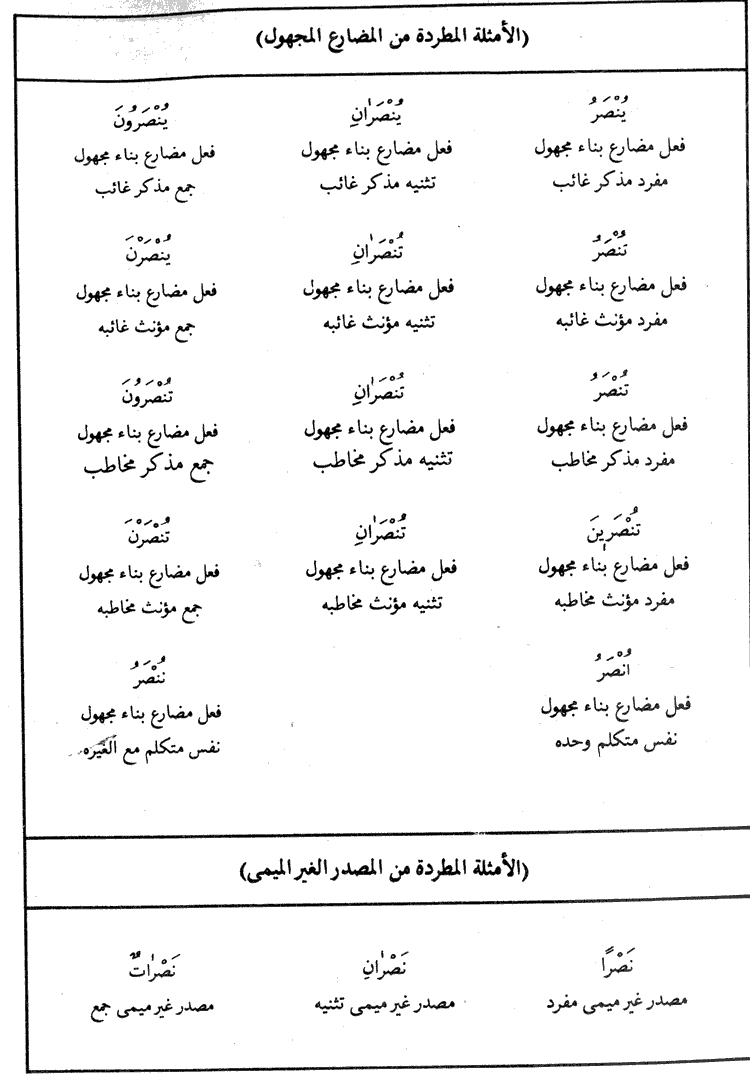 (الأمثلة المطردة من المضارع المجهول)
يُنْصَرُ يُنْصَرَانِ يُنْصَرُونَ
فعل مضارع بناء مجهول فعل مضارع بناء مجهول فعل مضارع بناء مجهول
مفرد مذكر غائب تثنيه مذكر غائب جمع مذكر غائب
تُنْصَرُ تُنْصَرَانِ يُنْصَرْنَ
فعل مضارع بناء مجهول فعل مضارع بناء مجهول فعل مضارع بناء مجهول
مفرد مؤنث غائبه تثنيه مؤنث غائبه جمع مؤنث غائبه
تُنْصَرُ تُنْصَرَانِ تُنْصَرُونَ
فعل مضارع بناء مجهول فعل مضارع بناء مجهول فعل مضارع بناء مجهول
مفرد مذكر مخاطب تثنيه مذكر مخاطب جمع مذكر مخاطب
تُنْصَرِينَ تُنْصَرَانِ تُنْصَرْنَ
فعل مضارع بناء مجهول فعل مضارع بناء مجهول فعل مضارع بناء مجهول
مفرد مؤنث مخاطبه تثنيه مؤنث مخاطبه جمع مؤنث مخاطبه
اُنْصَرُ نُنْصَرُ
فعل مضارع بناء مجهول فعل مضارع بناء مجهول
نفس متكلم وحده نفس متكلم مع الغيره
(الأمثلة المطردة من المصدر الغير الميمى)
نَصْرًا نَصْرَانِ نَصْرَاتٌ
مصدر غير ميمى مفرد مصدر غير ميمى تثنيه مصدر غير ميمى جمع